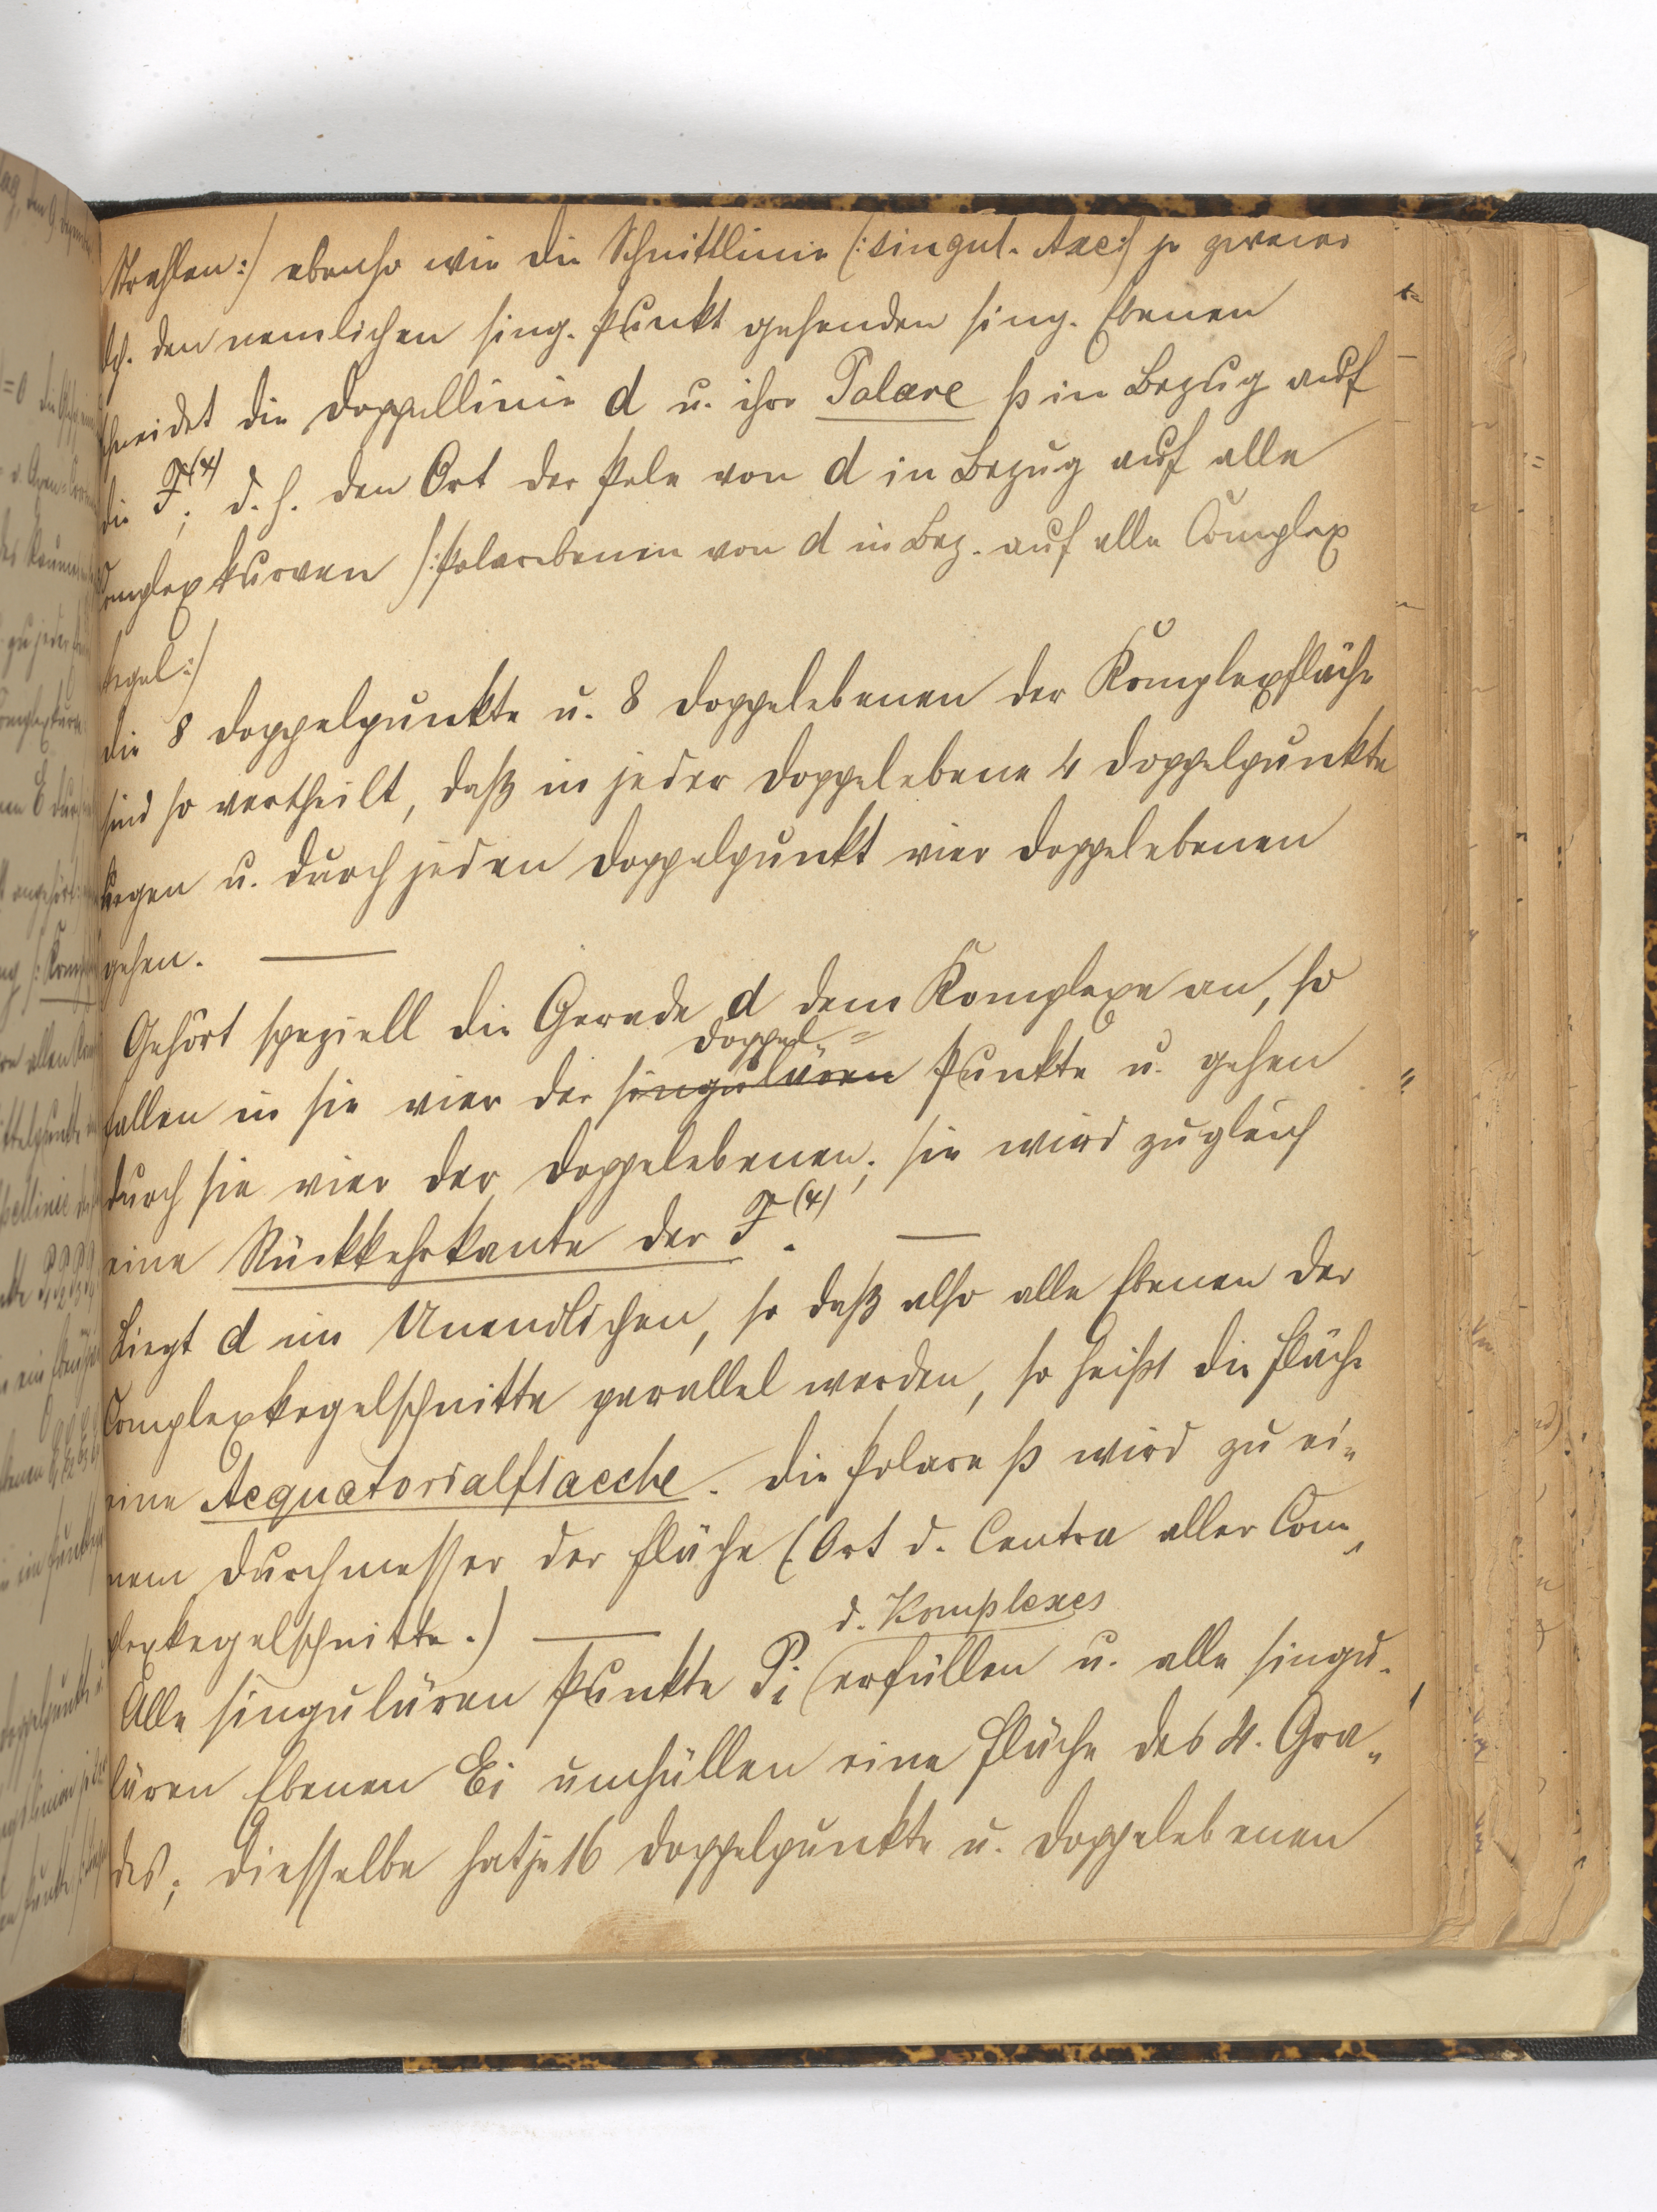 Strahlen:/ ebenso wie die Schnittlinie (:singul. Axe:/ je zweier
dch. den nemlichen sing. Punkt gehenden sing. Ebenen
schneidet die Doppellinie d u. ihre Polare p in Bezug auf
die F⁽⁴⁾; d. h. den Ort der Pole von d in Bezug auf alle
Complexkurven /:Polarebenen von d in Bez. auf alle Complex
kegel:/
die 8 Doppelpunkte u. 8 Doppelebenen der Komplexfläche
sind so vertheilt, daß in jeder Doppelebene 4 Doppelpunkte
liegen u. durch jeden Doppelpunkt vier Doppelebenen
gehen. —
Gehört speziell die Gerade d dem Komplexe an, so
Doppel-
fallen in sie vier der singulären Punkte u. gehen
durch sie vier der Doppelebenen; sie wird zugleich
eine Rückkehrkante der F⁽⁴⁾. —
Liegt d im Unendlichen, so daß also alle Ebenen der
Complexkegelschnitte parallel werden, so heißt die Fläche
eine Aequatorialflaeche. Die Polare p wird zu ei-
nem Durchmesser der Fläche (Ort d. Centra aller Com-
plexkegelschnitte.) —
d. Komplexes
Alle singulären Punkte Pi erfüllen u. alle singu-
lären Ebenen Ei umhüllen eine Fläche des 4. Gra-
des; diesselbe hat je 16 Doppelpunkte u. Doppelebenen